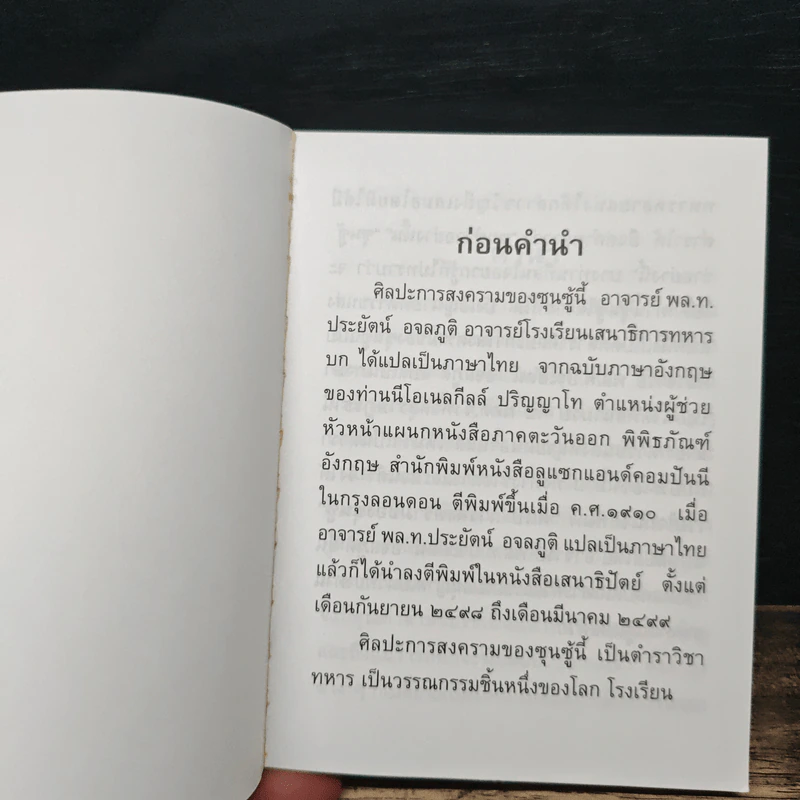 ก่อนคำนำ
ศิลปะการสงครามของซุนซู้นี้ อาจารย์ พล.ท.
ประยัตน์ อจลภูติ อาจารย์โรงเรียนเสนาธิการทหาร
บก ได้แปลเป็นภาษาไทย จากฉบับภาษาอังกฤษ
ของท่านนีโอเนลกีลล์ ปริญญาโท ตำแหน่งผู้ช่วย
หัวหน้าแผนกหนังสือภาคตะวันออก พิพิธภัณฑ์
อังกฤษ สำนักพิมพ์หนังสือลูแซกแอนด์คอมปันนี
ในกรุงลอนดอน ตีพิมพ์ขึ้นเมื่อ ค.ศ.๑๙๑๐ เมื่อ
อาจารย์ พล.ท.ประยัตน์ อจลภูติ แปลเป็นภาษาไทย
แล้วก็ได้นำลงตีพิมพ์ในหนังสือเสนาธิปัตย์ ตั้งแต่
เดือนกันยายน ๒๔๙๘ ถึงเดือนมีนาคม ๒๔๙๙
ศิลปะการสงครามของซุนซู้นี้ เป็นตำราวิชา
ทหาร เป็นวรรณกรรมชิ้นหนึ่งของโลก โรงเรียน